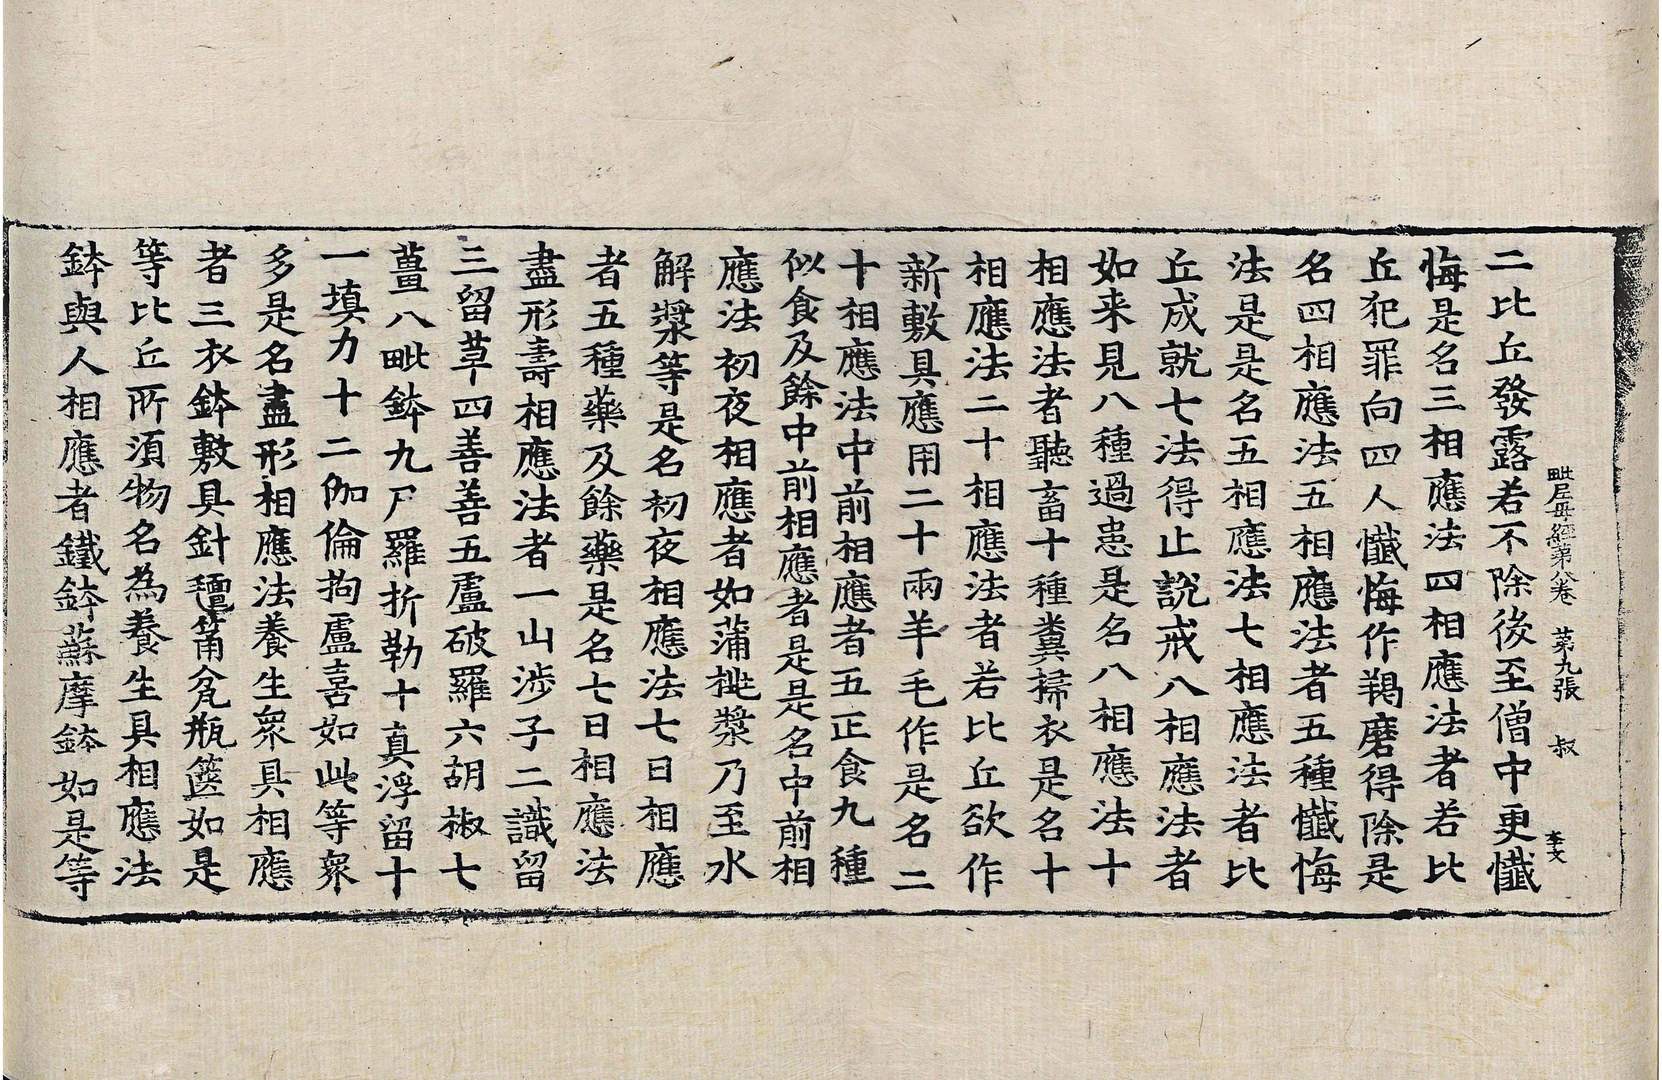 毗尼母經第八卷 第九張 叔 李文
二比丘發露若不除後至僧中更懺
悔是名三相應法四相應法者若比
丘犯罪向四人懺悔作羯磨得除是
名四相應法五相應法者五種懺悔
法是是名五相應法七相應法者比
丘成就七法得止說戒八相應法者
如来見八種過患是名八相應法十
相應法者聽畜十種糞掃衣是名十
相應法二十相應法者若比丘欲作
新敷具應用二十兩羊毛作是名二
十相應法中前相應者五正食九種
似食及餘中前相應者是是名中前相
應法初夜相應者如蒲桃漿乃至水
解漿等是名初夜相應法七日相應
者五種藥及餘藥是名七日相應法
盡形壽相應法者一山涉子二識留
三留草四善善五盧破羅六胡椒七
薑八毗鉢九尸羅折勒十真浮留十
一填力十二伽倫拘盧喜如此等衆
多是名盡形相應法養生衆具相應
者三衣鉢敷具針氈筩瓫瓶篋如是
等比丘所須物名為養生具相應法
鉢與人相應者鐵鉢蘇摩鉢如是等